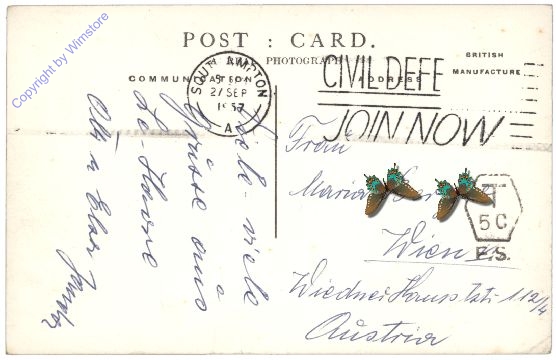 Copyright by Wimstore
POST : CARD.
PHOTOGRAPH
BRITISH
MANUFACTURE
COMMUNICATION
ADDRESS
SOUTHAMPTON
27 SEP
1957
A
CIVIL DEFE
JOIN NOW
Viele - viele
Grüsse aus
Le-Havre
Frau
Maria
Wien
Wiedner Hauptstr. 112/4
Austria
T
5C
F.S.